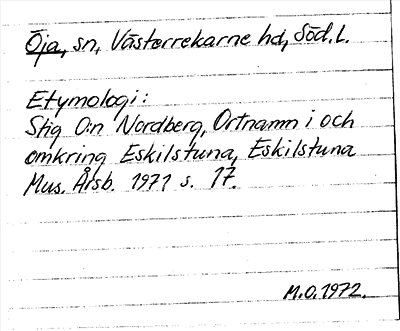 Öja, sn, Västerrekarne hd, Söd. L.
Etymologi:
Stig O:n Nordberg, Ortnamn i och
omkring Eskilstuna, Eskilstuna
Mus. Årsb. 1971 s. 17.
M.O. 1972.